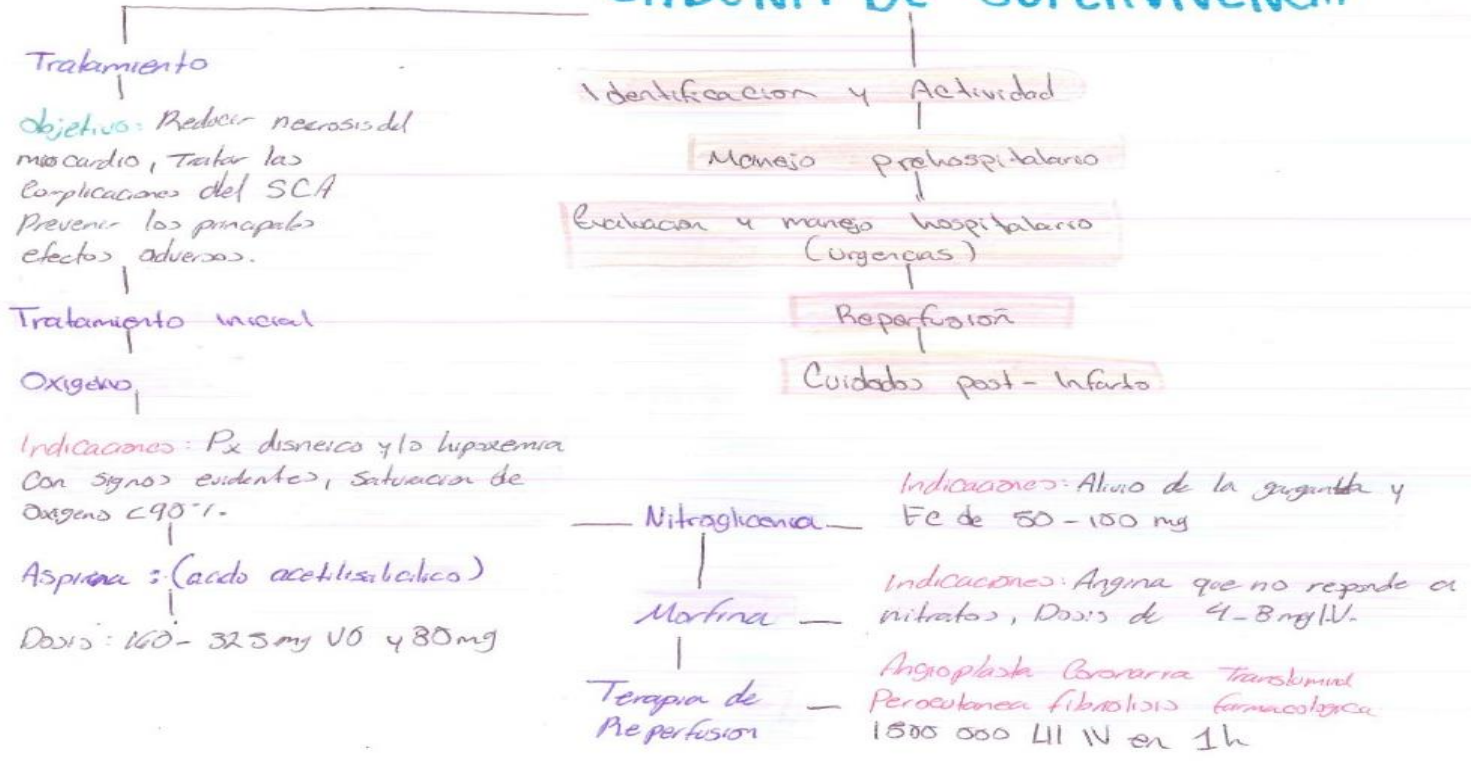 CADENA DE SUPERVIVENCIA
Tratamiento
Objetivo: Reducir necrosis del
miocardio, Tratar las
Complicaciones del SCA
Prevenir los principales
efectos adversos.
Tratamiento inicial
Oxigeno
Indicaciones: Px disneico y/o hipoxemia
Con signos evidentes, Saturacion de
Oxigeno <90%.
Aspirina : (acido acetilsalicilico)
Dosis: 160- 325mg VO y 80mg
Identificacion y Actividad
Manejo prehospitalario
Evaluacion y manejo hospitalario
(Urgencias)
Reperfusion
Cuidados post-Infarto
Nitroglicerica
Indicaciones: Alivio de la y
FC de 50-100 mg
Morfina
Indicaciones: Angina que no responde a
nitratos, Dosis de 4-8mg I.V.
Terapia de
Reperfusion
Angioplastia Coronaria Transluminal
Percutanea fibrolisis farmacologica
1500 000 UI IV en 1h